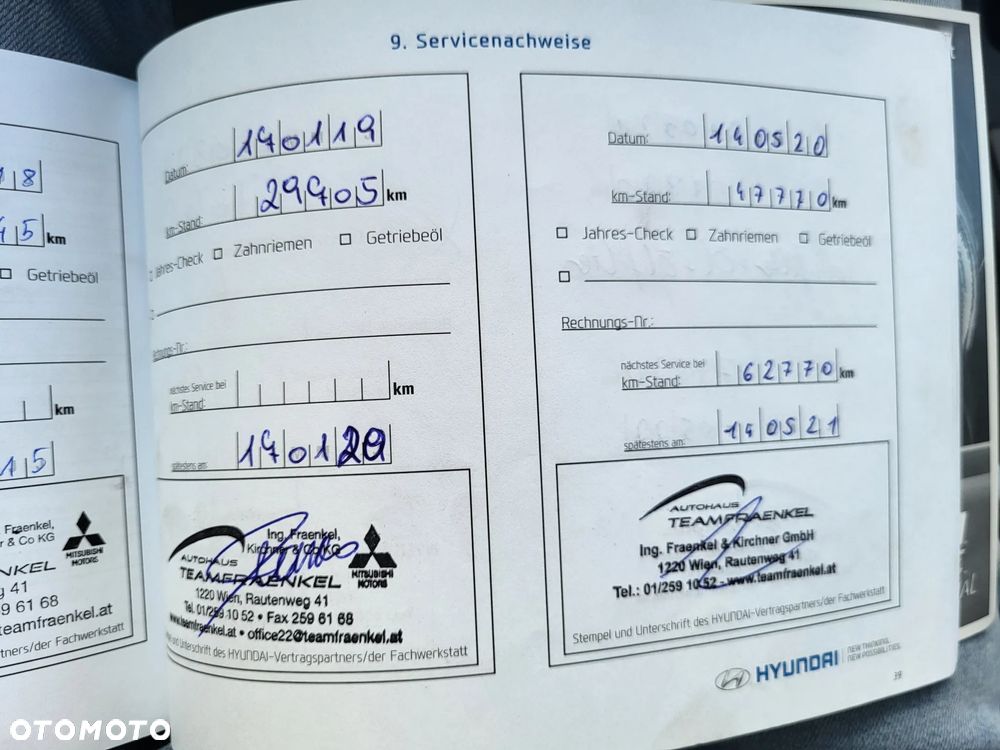 9. Servicenachweise
18
45 km
Getriebeöl
km
15
Fraenkel,
r & Co KG
MITSUBISHI
MOTORS
NKEL
g 41
9 61 68
teamfraenkel.at
tners/der Fachwerkstatt
Datum: 170119
km-Stand: 29705 km
Jahres-Check Zahnriemen Getriebeöl
echnungs-Nr.:
nächstes Service bei
km-Stand: km
spätestens am: 170120
AUTOHAUS
TEAMFRAENKEL
Ing. Fraenkel,
Kirchner & Co KG
MITSUBISHI
MOTORS
1220 Wien, Rautenweg 41
Tel. 01/259 10 52 • Fax 259 61 68
www.teamfraenkel.at • office22@teamfraenkel.at
el und Unterschrift des HYUNDAI-Vertragspartners/der Fachwerkstatt
Datum: 140520
km-Stand: 47770 km
Jahres-Check Zahnriemen Getriebeöl
Rechnungs-Nr.:
nächstes Service bei
km-Stand: 62770 km
spätestens am: 140521
AUTOHAUS
TEAMFRAENKEL
Ing. Fraenkel & Kirchner GmbH
1220 Wien, Rautenweg 41
Tel.: 01/259 10 52 - www.teamfraenkel.at
Stempel und Unterschrift des HYUNDAI-Vertragspartners/der Fachwerkstatt
HYUNDAI
NEW THINKING.
NEW POSSIBILITIES.
39
OTOMOTO